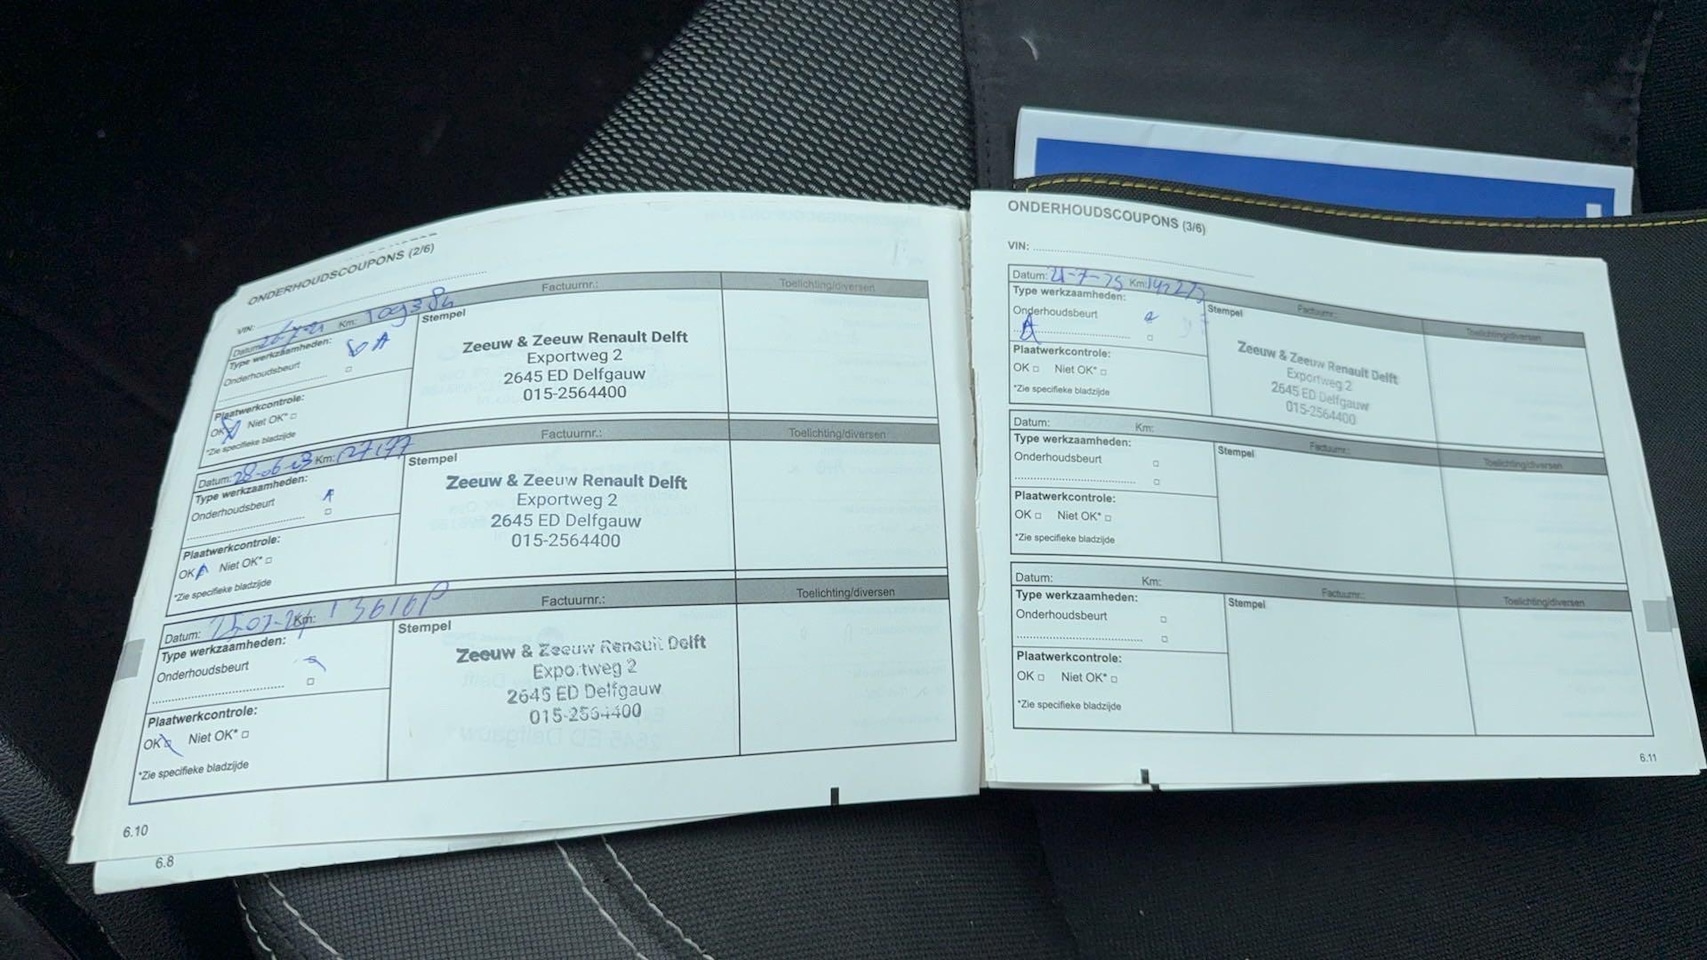 ONDERHOUDSCOUPONS (2/6)
VIN:
Datum: Km: Factuurnr.: Toelichting/diversen
Type werkzaamheden:
Onderhoudsbeurt
Plaatwerkcontrole:
OK Niet OK*
*Zie specifieke bladzijde
Stempel
Zeeuw & Zeeuw Renault Delft
Exportweg 2
2645 ED Delfgauw
015-2564400
Datum: 28-06-23 Km: 127177 Factuurnr.: Toelichting/diversen
Type werkzaamheden:
Onderhoudsbeurt
Plaatwerkcontrole:
OK Niet OK*
*Zie specifieke bladzijde
Stempel
Zeeuw & Zeeuw Renault Delft
Exportweg 2
2645 ED Delfgauw
015-2564400
Datum: Km: Factuurnr.: Toelichting/diversen
Type werkzaamheden:
Onderhoudsbeurt
Plaatwerkcontrole:
OK Niet OK*
*Zie specifieke bladzijde
Stempel
Zeeuw & Zeeuw Renault Delft
Exportweg 2
2645 ED Delfgauw
015-2564400
6.10
6.8
ONDERHOUDSCOUPONS (3/6)
VIN:
Datum: 21-7-25 Km: Factuurnr.: Toelichting/diversen
Type werkzaamheden:
Onderhoudsbeurt
Plaatwerkcontrole:
OK Niet OK*
*Zie specifieke bladzijde
Stempel
Zeeuw & Zeeuw Renault Delft
Exportweg 2
2645 ED Delfgauw
015-2564400
Datum: Km: Factuurnr.: Toelichting/diversen
Type werkzaamheden:
Onderhoudsbeurt
Plaatwerkcontrole:
OK Niet OK*
*Zie specifieke bladzijde
Stempel
Datum: Km: Factuurnr.: Toelichting/diversen
Type werkzaamheden:
Onderhoudsbeurt
Plaatwerkcontrole:
OK Niet OK*
*Zie specifieke bladzijde
Stempel
6.11